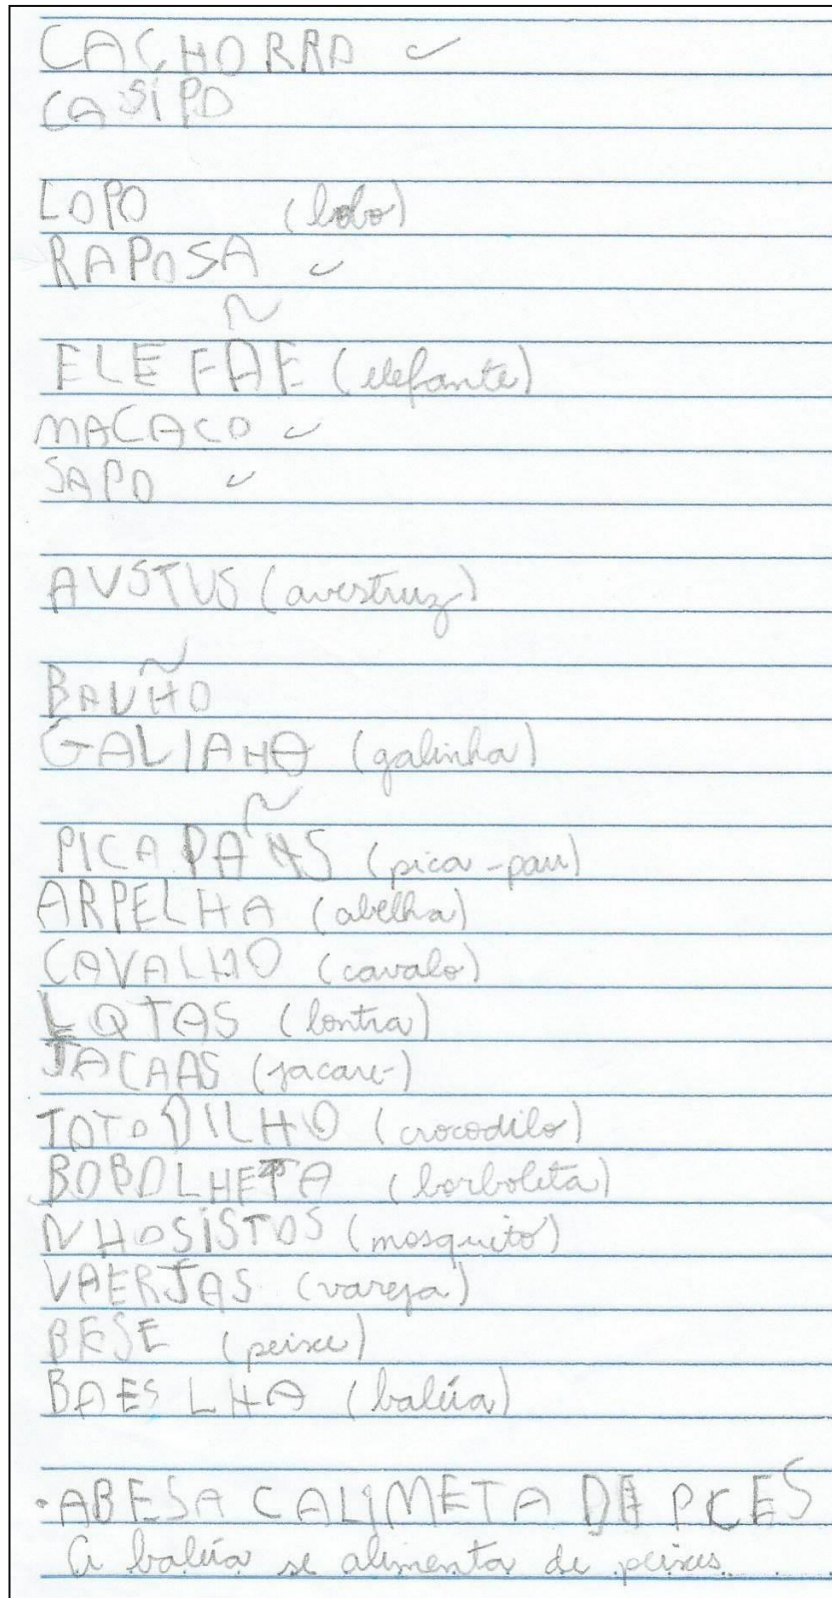 CACHORRO ✓
CASIPO
LOPO (lobo)
RAPOSA ✓
ELEFÃE (elefante)
MACACO ✓
SAPO ✓
AVSTUS (avestruz)
BAVÑHO
GALIAHA (galinha)
PICAPAÑHS (pica-pau)
ARPELHA (abelha)
CAVALHO (cavalo)
LOTAS (lontra)
JACAAS (jacaré)
TOTODILHO (crocodilo)
BOBOLHETA (borboleta)
NHOSISTOS (mosquito)
VAERJAS (vareja)
BESE (peixe)
BAESLHA (baleia)
• ABESA CALIMETA DE PCES
A baleia se alimenta de peixes.